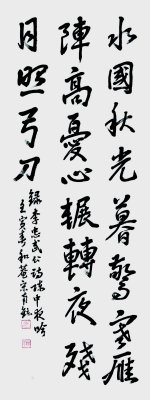 水國秋光暮驚寒雁
陣高憂心輾轉夜殘
月照弓刀
錄李忠武公詩陣中夜吟
壬寅春和菴宗貞鈺